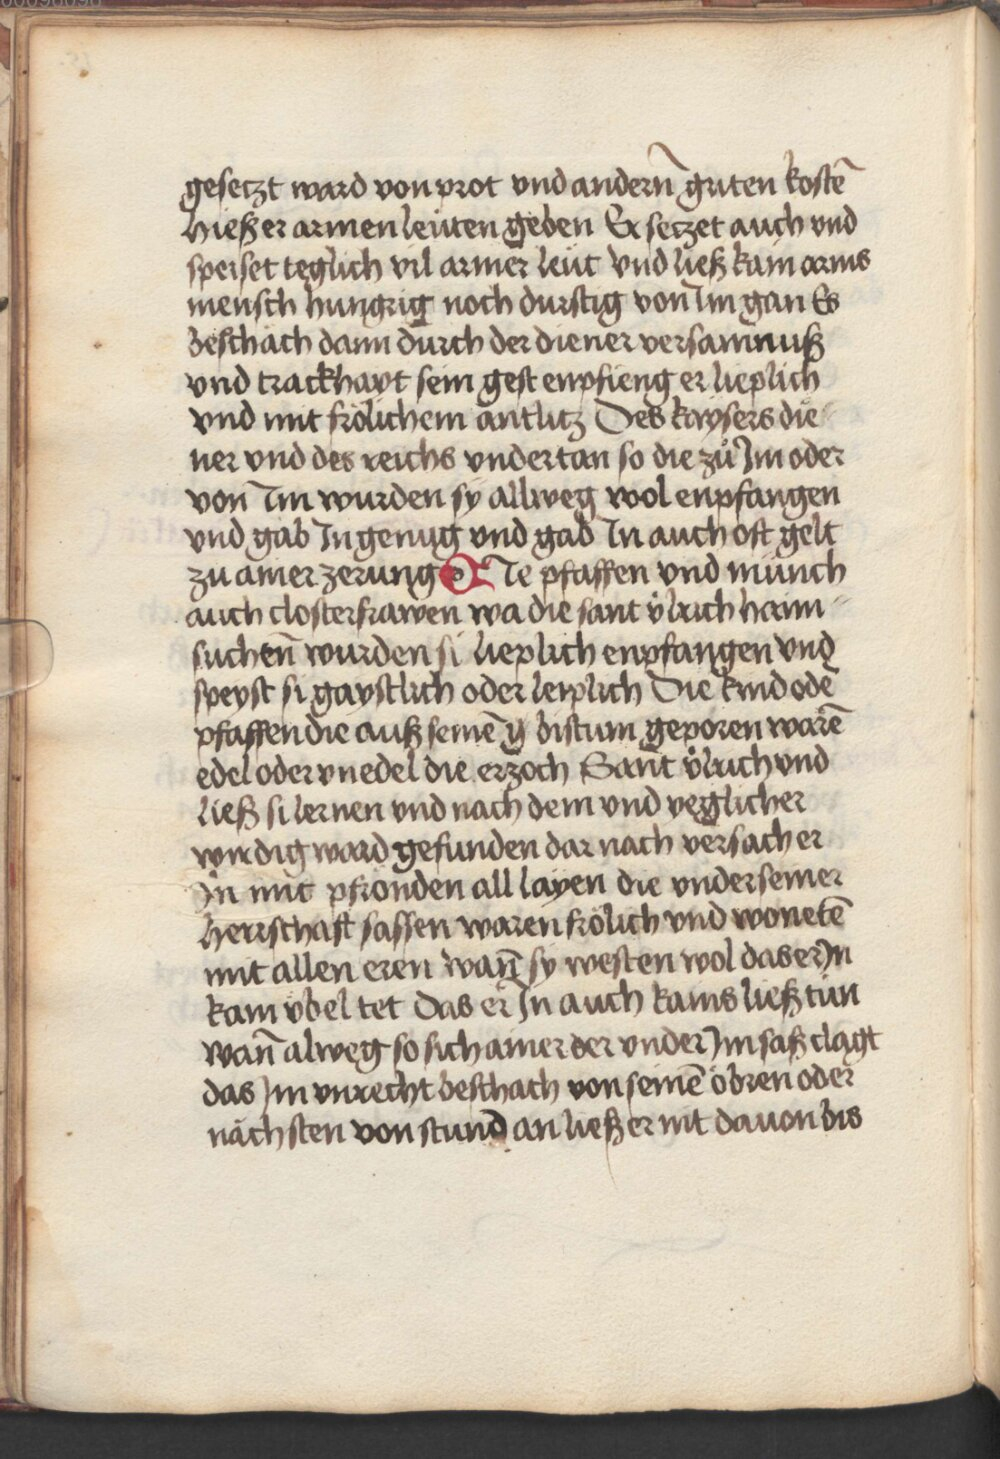 gesetzt ward von prot vnd andern̄ guten kostē
hieß er armen leuten geben Er setzet auch vnd
speiset teglich vil armer leut vnd ließ kain arms
mensch hungrig noch durstig von Im gan Es
beschach dann durch der diener versamnuß
vnd trackhayt sein gest enpfieng er lieplich
vnd mit frölichem antlitz Des kaysers die
ner vnd des reichs vndertan so die zů Im oder
von Im wurden sy allweg wol enpfangen
vnd gab In genug vnd gab In auch oft gelt
zu ainer zerung DIe pfaffen vnd münch
auch closterfrawen wa die sant v̊lrich haim
suchten̄ wurden si lieplich enpfangen vnd
speyst si gaystlich oder leiplich Die kind odē
pfaffen die auß seinē bistum geporen warē
edel oder vnedel die erzoch Sant v̊lrich vnd
ließ si lernen vnd nach dem vnd yeglicher
wirdig ward gefunden dar nach versach er
In mit pfronden all layen die vnder seiner
herrschaft sassen waren frölich vnd wonetē
mit allen eren wan̄ sy westen wol das er In
kain vbel tet Das er In auch kains ließ tun
wan̄ alweg so sich ainer der vnder Im saß clagt
das Im vnrecht beschach von seinē obren oder
nächsten von stund an ließ er nit dauon bis